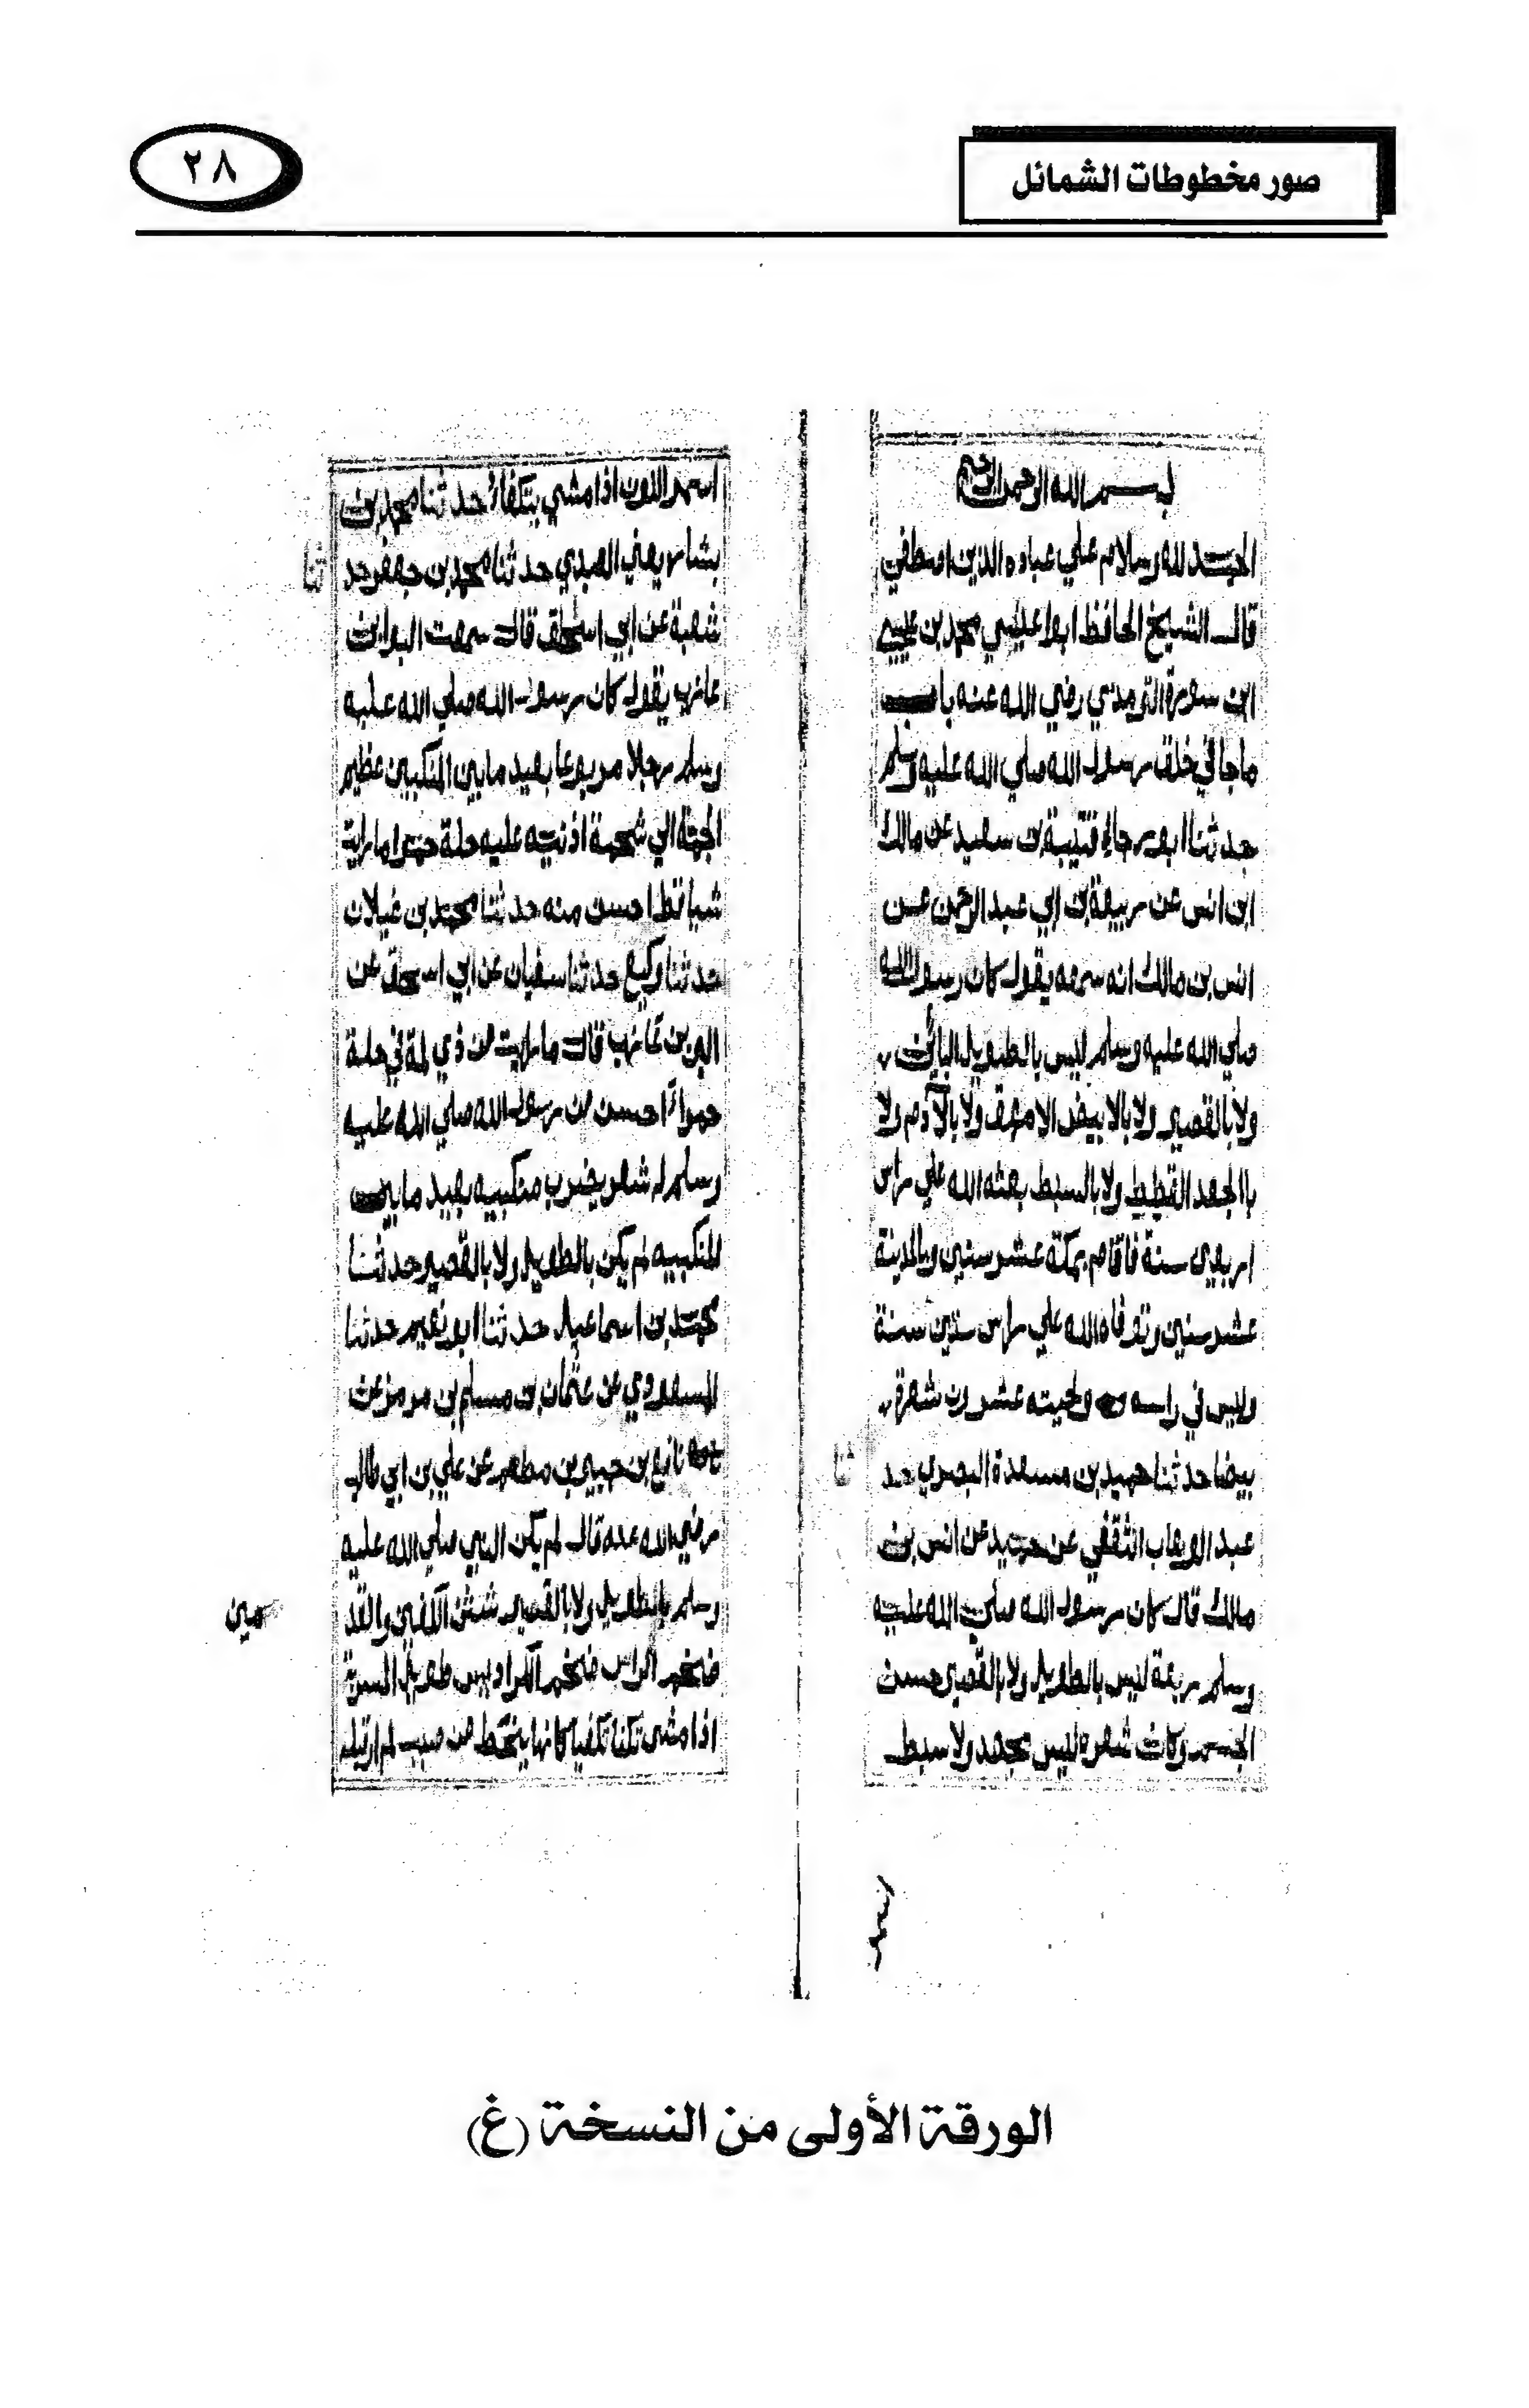 صور مخطوطات الشمائل
٢٨
بسم الله الرحمن الرحيم
الحمد لله وسلام علي عباده الذين اصطفي
قال الشيخ الحافظ ابوا عيسي محمد بن عيسي
ابن سورة الترمذي رضي الله عنه باب
ما جا في خلق رسول الله صلي الله عليه وسلم
حدثنا ابو رجاء قتيبة بن سعيد عن مالك
ابن انس عن ربيعة بن ابي عبد الرحمن عن
انس بن مالك انه سمعه يقول كان رسول الله
صلي الله عليه وسلم ليس بالطويل البائن
ولا بالقصير ولا بالابيض الامهق ولا بالآدم ولا
باالجعد القطط ولا بالسبط بعثه الله علي راس
اربعين سنة فاقام بمكة عشر سنين وبالمدينة
عشر سنين وتوفاه الله علي راس ستين سنة
وليس في راسه ولحيته عشرون شعرة
بيضا حدثنا حميد بن مسعدة البصري حد
ثنا
عبد الوهاب الثقفي عن حميد عن انس بن
مالك قال كان رسول الله صلي الله عليه
وسلم ربعة ليس بالطويل ولا بالقصير حسن
الجسم وكان شعره ليس بجعد ولا سبط
اسمر اللون اذا مشي يتكفاء حدثنا محمد بن
بشار يعني العبدي حدثنا محمد بن جعفر حد
ثنا
شعبة عن ابي اسحاق قال سمعت البرا بن
عازب يقول كان رسول الله صلي الله عليه
وسلم رجلا مربوعا بعيد ما بين المنكبين عظيم
الجمة الي شحمة اذنيه عليه حلة حمرا ما راية
شيا قط احسن منه حدثنا محمد بن غيلان
حدثنا وكيع حدثنا سفيان عن ابي اسحق عن
البر بن عازب قال ما رايت من ذي لمة في حلة
حمراً احسن من رسول الله صلي الله عليه
وسلم له شعر يضرب منكبيه بعيد ما بين
المنكبيه لم يكن بالطويل ولا بالقصير حدثنا
محمد بن اسماعيل حدثنا ابو نعيم حدثنا
المسعودي عن عثمان بن مسلم بن هرمز عن
نافع بن جبير بن مطعم عن علي بن ابي طالب
رضي الله عنه قال لم يكن النبي صلي الله عليه
وسلم بالطويل ولا بالقصير شثن الكفين والقد
مين
ضخم الراس ضخم الكراديس طويل المسربة
اذا مشى تكفا تكفيا كانما ينحط من صبب لم ار قبله
الورقة الأولى من النسخة (غ)